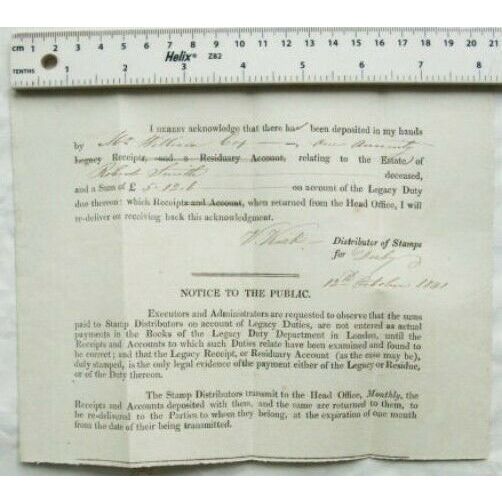 cm 1 2 3 4 5 6 7 8 9 10 11 12 13 14 15 16 17 18 19 20 21
Helix ® Z82
TENTHS 1 2 3 4 5 6 7 8
I HEREBY acknowledge that there has been deposited in my hands
by Mr William Cox one Annuity
Legacy Receipts, and a Residuary Account, relating to the Estate of
Robert Smith deceased,
and a Sum of £ 5.12.6 on account of the Legacy Duty
due thereon: which Receipts and Account, when returned from the Head Office, I will
re-deliver on receiving back this acknowledgment.
Distributor of Stamps
for Derby
October 1821
NOTICE TO THE PUBLIC.
Executors and Administrators are requested to observe that the sums
paid to Stamp Distributors on account of Legacy Duties, are not entered as actual
payments in the Books of the Legacy Duty Department in London, until the
Receipts and Accounts to which such Duties relate have been examined and found to
be correct; and that the Legacy Receipt, or Residuary Account (as the case may be),
duly stamped, is the only legal evidence of the payment either of the Legacy or Residue,
or of the Duty thereon.
The Stamp Distributors transmit to the Head Office, Monthly, the
Receipts and Accounts deposited with them, and the same are returned to them, to
be re-delivered to the Parties to whom they belong, at the expiration of one month
from the date of their being transmitted.